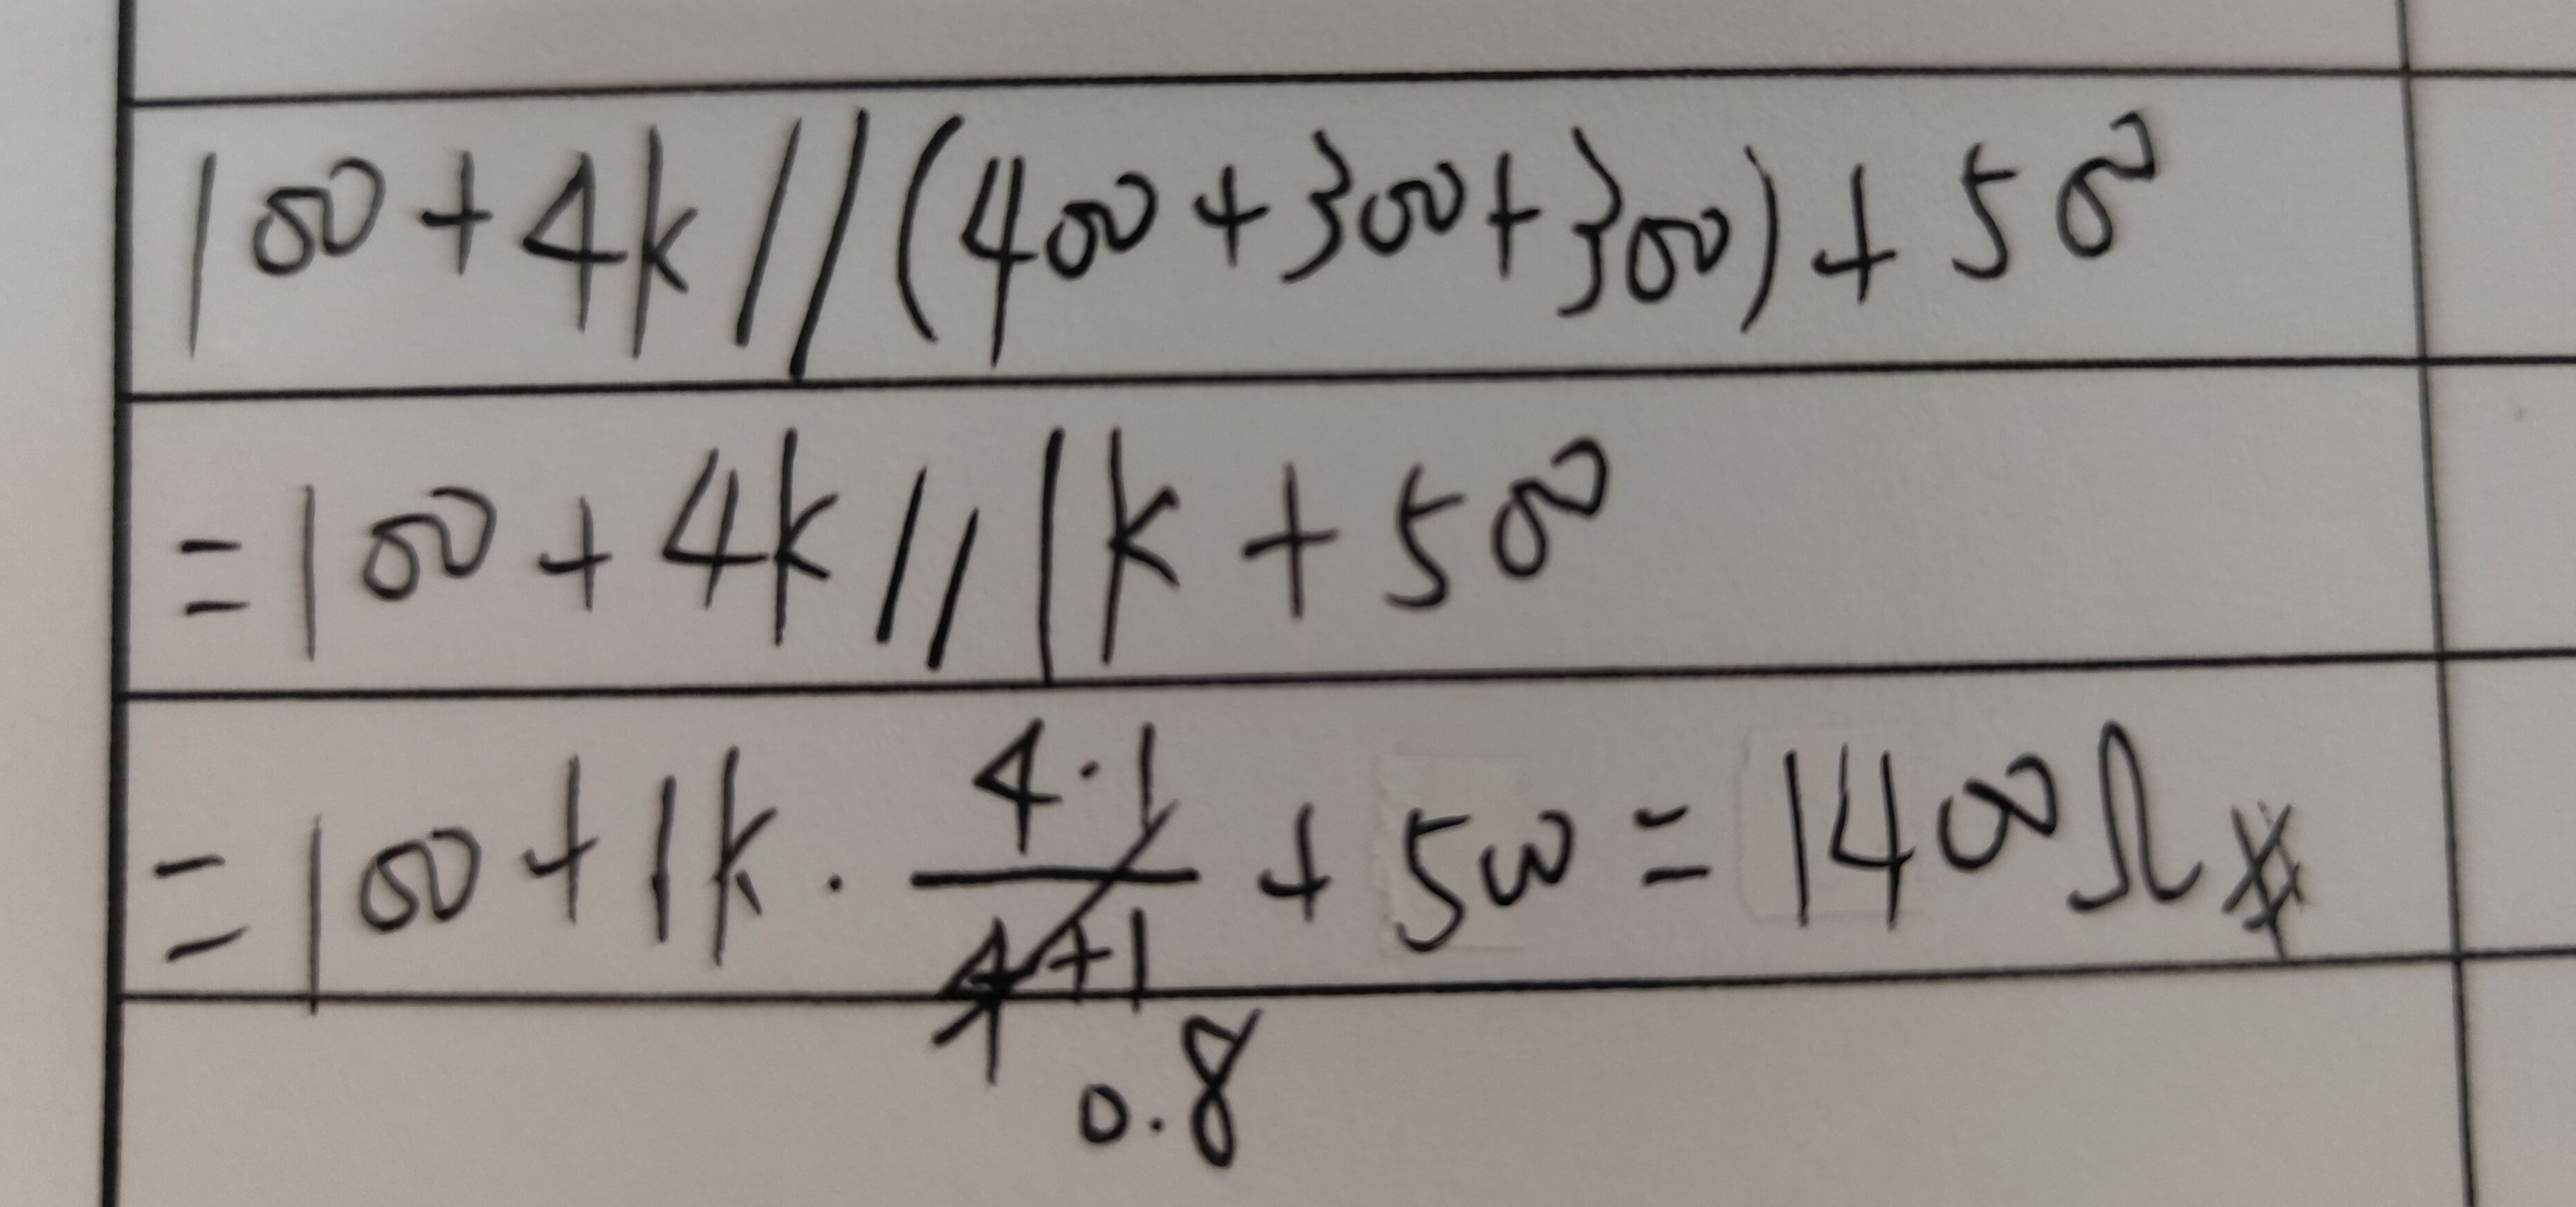 100+4k//(400+300+300)+500
=100+4k//1k+500
=100+1k·4·1/4+1+500=1400Ω
0.8